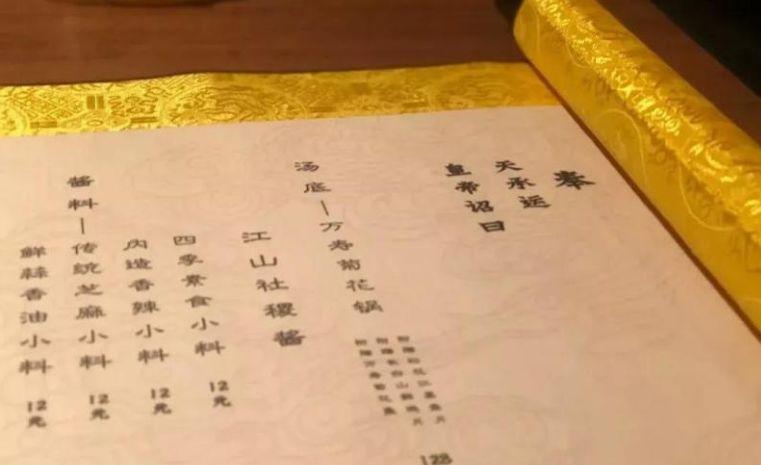 奉
天承运
皇帝诏曰
汤底—万寿菊花锅
128
江山社稷酱
四季素食小料 12元
内造香辣小料 12元
酱料—传统芝麻小料 12元
鲜蒜香油小料 12元